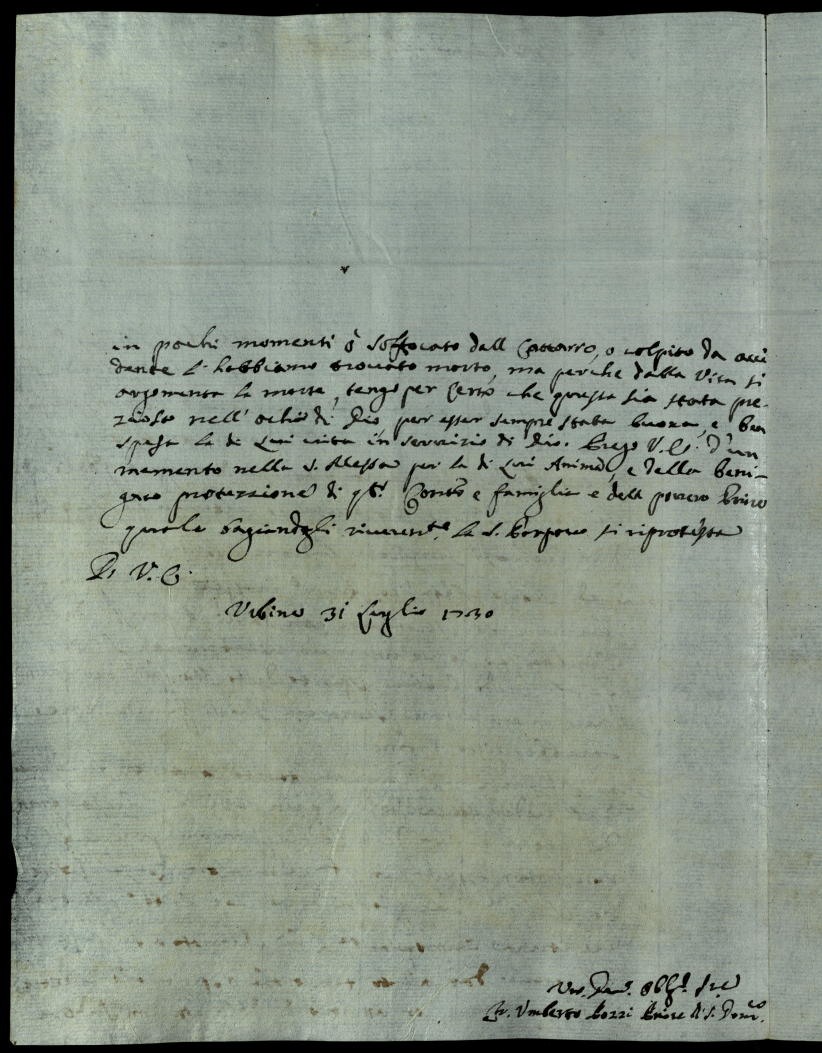 in pochi momenti ò soffocato dall Cattarro, o colpito da acci
dente l'habbiamo trovato morto, ma perche dalla Vita si
argomenta la morte, tengo per certo che questa sia stata pre-
ziosa nell'ochio di Dio, per esser sempre stata buona, e ben
spesa la di Lui vita in servizio di Dio. Prego V.E. d'un
memento nella S. Messa per la di Lui Anima, e della beni-
gna protezzione di qto. Conto e famiglia e dell povero Priore
quale bagiandogli riverente. la S. Porpora si riprotesta
Di V.E.
Urbino 31 Luglio 1730
Um. Dev. Obblg. Sre
Fr. Umberto Pozzi Priore di S. Domco.